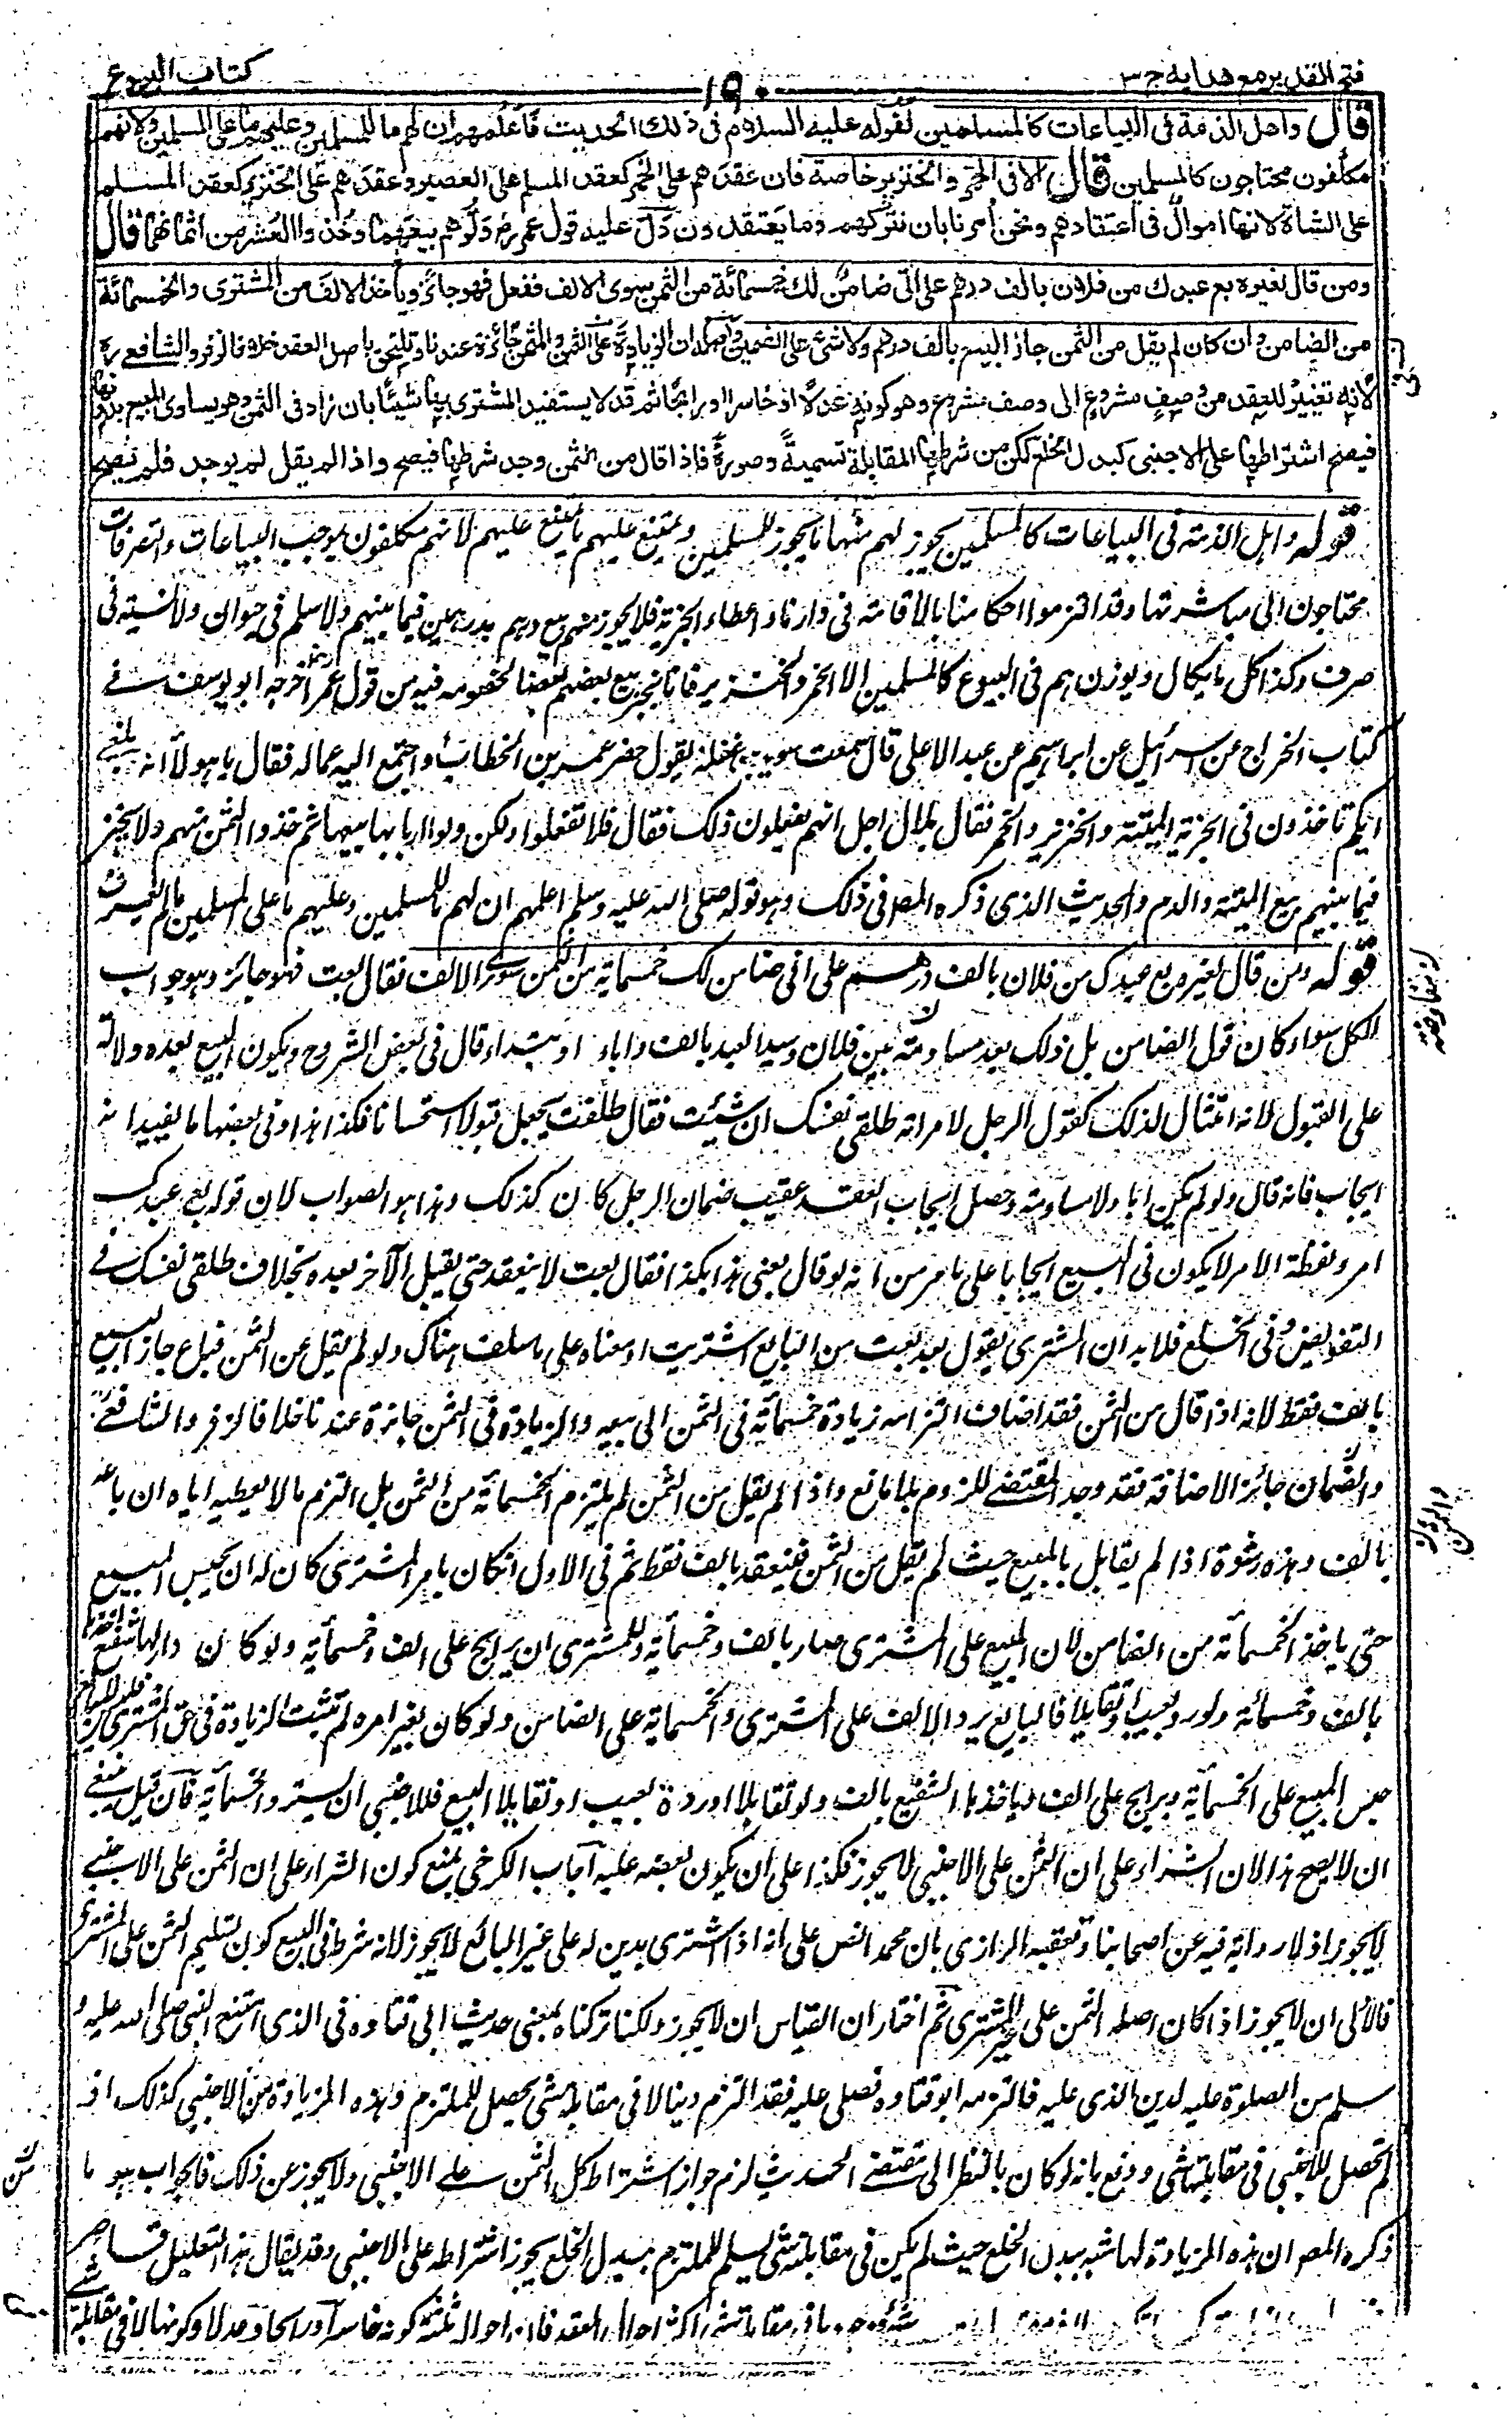 فتح القدير مع هدايه ج ٣
١٩٠
كتاب البيوع
قال واهل الذمة فى البياعات كالمسلمين لقوله عليه السلام فى ذلك الحديث فأعلمهم ان لهم ما للمسلمين وعليهم ما على المسلمين ولانهم
مكلفون محتاجون كالمسلمين قال الا فى الخمر والخنزير خاصة فان عقدهم على الخمر كعقد المسلم على العصير وعقدهم على الخنزير كعقد المسلم
على الشاة لانها اموال فى اعتقادهم ونحن أمرنا بان نتركهم وما يعتقدون دل عليه قول عمر رض ولّوهم بيعهما وخذوا العشر من اثمانهما قال
ومن قال لغيره بع عبدك من فلان بالف درهم على انى ضامن لك خمسمائة من الثمن سوى الالف ففعل فهو جائز ويأخذ الالف من المشترى والخمسمائة
من الضامن وان كان لم يقل من الثمن جاز البيع بالف درهم ولا شئ على الضمين واصله ان الزيادة على الثمن والمثمن جائزة عندنا وتلتحق باصل العقد خلافا لزفر والشافعى ره
لانه تغيير للعقد من وصف مشروع الى وصف مشروع وهو كونه عدلا او خاسرا او رابحا ثم قد لا يستفيد المشترى بها شيئا بان زاد فى الثمن وهو يساوى المبيع بدونها
فيصح اشتراطها على الاجنبى كبدل الخلع لكن من شرطها المقابلة تسمية وصورة فاذا قال من الثمن وجد شرطها فيصح واذا لم يقل لم يوجد فلم يصح
قوله واهل الذمة فى البياعات كالمسلمين يجوز لهم منها ما يجوز للمسلمين ويمتنع عليهم ما يمتنع عليهم لانهم مكلفون بموجب البياعات والتصرفات
محتاجون الى مباشرتها وقد التزموا احكامنا بالاقامة فى دارنا واعطاء الجزية فلا يجوز منهم بيع درهم بدرهمين فيما بينهم ولا سلم فى حيوان ولا نسيئة فى
صرف وكذا كل ما يكال ويوزن هم فى البيوع كالمسلمين الا الخمر والخنزير فانا نجيز بيع بعضهم بعضا لخصومه فيه من قول عمر اخرجه ابو يوسف فى
كتاب الخراج عن اسرائيل عن ابراهيم عن عبد الاعلى قال سمعت سويد بن غفلة يقول حضر عمر بن الخطاب واجتمع اليه عماله فقال يا هؤلاء انه بلغنى
انكم تاخذون فى الجزية الميتة والخنزير والخمر فقال بلال اجل انهم يفعلون ذلك فقال فلا تفعلوا ولكن ولوا اربابها بيعها ثم خذوا الثمن منهم ولا نجيز
فيما بينهم بيع الميتة والدم والحديث الذى ذكره المصه فى ذلك وهو قوله صلى الله عليه وسلم اعلمهم ان لهم ما للمسلمين وعليهم ما على المسلمين ما لم يعرف
قوله ومن قال لغيره بع عبدك من فلان بالف درهم على انى ضامن لك خمسمائة من الثمن سوى الالف فقال بعت فهو جائز وهو جواب
للكل سواء كان قول الضامن بل ذلك بعد مساومة بين فلان وسيد العبد بالف واباء او ابتداء قال فى بعض الشروح ويكون البيع بعده دلالة
على القبول لانه امتثال لذلك كقول الرجل لامراته طلقى نفسك ان شئت فقال طلقت يجعل قبولا استحسانا فكذا هذا وفى بعضها ما يفيد انه
ايجاب فانه قال ولو لم يكن اباء ولا مساومة وحصل ايجاب العقد عقيب ضمان الرجل كان كذلك وهذا هو الصواب لان قوله بع عبدك
امر ولفظة الامر لا يكون فى البيع ايجابا على ما مر من انه لو قال بعنى هذا بكذا فقال بعت لا ينعقد حتى يقبل الآخر بعده بخلاف طلقى نفسك فى
التفويض وفى الخلع فلا بد ان المشترى يقول بعد بعت من البايع اشتريت او معناه على ما سلف هناك ولو لم يقل من الثمن فباع جاز البيع
بالف فقط لانه اذا قال من الثمن فقد اضاف التزامه زيادة خمسمائة فى الثمن الى بيعه والزيادة فى الثمن جائزة عندنا خلافا لزفر والشافعى
والضمان جائز الاضافة فقد وجد المقتضى للزوم بلا مانع واذا لم يقل من الثمن لم يلتزم الخمسمائة من الثمن بل التزم مالا يعطيه اياه ان باعه
بالف وهذه رشوة اذا لم يقابل بالمبيع حيث لم يقل من الثمن فينعقد بالف فقط ثم فى الاول ان كان بامر المشترى كان له ان يحبس المبيع
حتى ياخذ الخمسمائة من الضامن لان المبيع على المشترى صار بالف وخمسمائة وللمشترى ان يرابح على الف وخمسمائة ولو كان دارا لها شفيع اخذها
بالف وخمسمائة ولو رد بعيب او تقايلا فالبايع يرد الالف على المشترى والخمسمائة على الضامن ولو كان بغير امره لم تثبت الزيادة فى حق المشترى فليس للبائع
حبس المبيع على الخمسمائة ويرابح على الف وياخذها الشفيع بالف ولو تقايلا او رده بعيب او تقايلا البيع فللاجنبى ان يسترد الخمسمائة فان قيل ينبغى
ان لا يصح هذا لان الشراء على ان الثمن على الاجنبى لا يجوز فكذا على ان يكون بعضه عليه اجاب الكرخى بمنع كون الشراء على ان الثمن على الاجنبى
لا يجوز اذ لا رواية فيه عن اصحابنا وتعقبه الرازى بان محمدا نص على انه اذا اشترى بدين له على غير البائع لا يجوز لانه شرط فى البيع كون تسليم الثمن على غير المشترى
فالاولى ان لا يجوز اذا كان اصل الثمن على غير المشترى ثم اختار ان القياس ان لا يجوز ولكنا تركناه بمعنى حديث ابى قتادة فى الذى امتنع النبى صلى الله عليه و
سلم من الصلوة عليه لدين الذى عليه فالتزمه ابو قتادة فصلى عليه فقد التزم دينا لا فى مقابلة شئ يحصل للملتزم وهذه الزيادة من الاجنبى كذلك اذ
لم تحصل للاجنبى فى مقابلتها شئ ودفع بانه لو كان بالنظر الى مقتضى الحديث لزم جواز اشتراط كل الثمن على الاجنبى ولا يجوز عن ذلك فالجواب هو ما
ذكره المصه ان هذه الزيادة لها شبه ببدل الخلع حيث لم يكن فى مقابلته شئ يسلم للملتزم فبدل الخلع يجوز اشتراطه على الاجنبى وقد يقال هذا التعليل قاصر
احوال العقد فان احواله ثلثة كونه خاسرا ورابحا وعدلا وكونها لا فى مقابلة